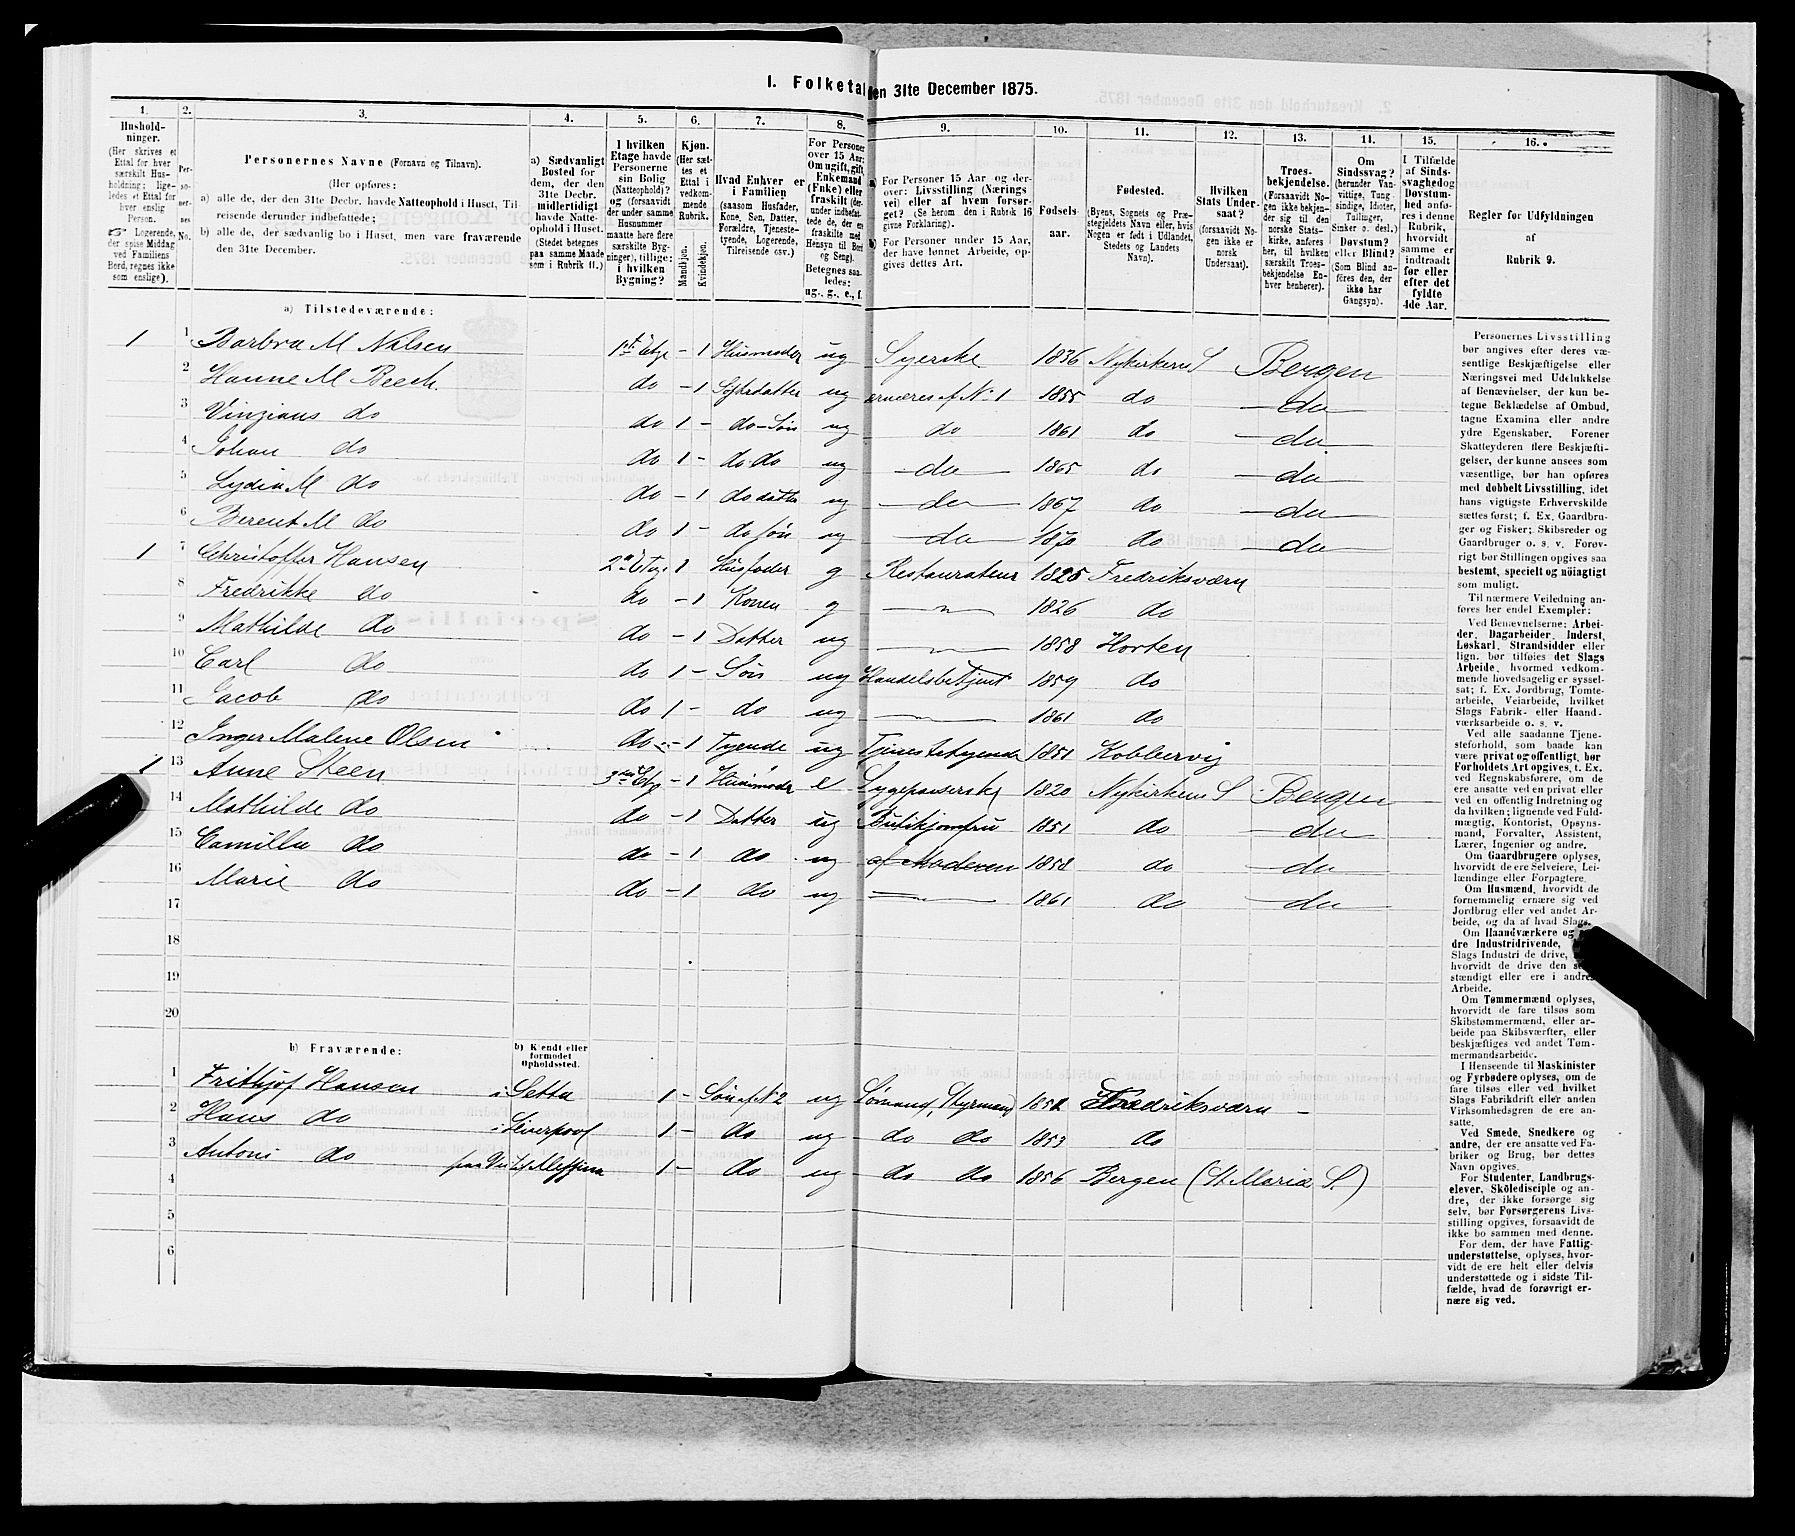 1. Folketal den 31te December 1875.
1. Husholdninger. (Her skrives et Ettal for hver særskilt Husholdning; ligeledes et Ettal for hver enslig Person. Logerende, der spise Middag ved Familiens Bord, regnes ikke som enslige).
2. Personernes No.
3. Personernes Navne (Fornavn og Tilnavn).
(Her opføres:
a) alle de, der den 31te Decbr. havde Natteophold i Huset, Tilreisende derunder indbefattede;
b) alle de, der sædvanlig bo i Huset, men vare fraværende den 31te December.
4. a) Sædvanligt Bosted for dem, der den 31te Decbr. midlertidigt havde Natteophold i Huset. (Stedet betegnes paa samme Maade som i Rubrik 11.)
5. I hvilken Etage havde Personerne sin Bolig (Natteophold)? og (forsaavidt der under samme Husnummer maatte høre flere særskilte Bygninger), tillige: i hvilken Bygning?
6. Kjøn. (Her sættes et Ettal i vedkommende Rubrik.
Mandkjøn. Kvindekjøn.
7. Hvad Enhver er i Familien (saasom Husfader, Kone, Søn, Datter, Forældre, Tjenestetyende, Logerende, Tilreisende osv.)
8. For Personer over 15 Aar: Om ugift, gift, Enkemand (Enke) eller fraskilt (derunder indbefattede de, der ere fraskilte med Hensyn til Bord og Seng). Betegnes saaledes: ug., g., e., f.
9. a) For Personer 15 Aar og derover: Livsstilling (Næringsvei) eller af hvem forsørget? (Se herom den i Rubrik 16 givne Forklaring).
b) For Personer under 15 Aar, der have lønnet Arbeide, opgives dettes Art.
10. Fødselsaar.
11. Fødested. (Byens, Sognets og Præstegjeldets Navn eller, hvis Nogen er født i Udlandet, Stedets og Landets Navn).
12. Hvilken Stats Undersaat? (forsaavidt Nogen ikke er norsk Undersaat).
13. Troesbekjendelse. (Forsaavidt Nogen ikke bekjender sig til den norske Statskirke, anføres her, til hvilken særskilt Troesbekjendelse Enhver henhører).
14. Om Sindssvag? (herunder Vanvittige, Tungsindige, Idioter, Tullinger, Sinker o. desl.) Døvstum? eller Blind? (Som Blind anføres den, der ikke har Gangsyn).
15. I Tilfælde af Sindssvaghed og Døvstumhed anføres i denne Rubrik, hvorvidt samme er indtraadt før eller efter det fyldte 4de Aar.
16. Regler for Udfyldningen af Rubrik 9.
a) Tilstedeværende:
1 1 Barbra M Nilsen 1ste Etge – 1 Husmoder ug Syerske 1836 Nykirkens S Bergen
2 Hanne M Beech do – 1 Søsterdatter ug ernæres af No 1 1855 do do
3 Vinzians do do 1 – do Søn ug do 1861 do do
4 Johan do do 1 – do do ug do 1865 do do
5 Lydia M do do – 1 do datter ug do 1867 do do
6 Berent M do do 1 – do søn ug do 1870 do do
1 7 Christoffer Hansen 2den Etge 1 Husfader g Restaurateur 1825 Fredriksværn
8 Fredrikke do do – 1 Konen g – " – 1826 do
9 Mathilde do do – 1 Datter ug – " – 1858 Horten
10 Carl do do 1 – Søn ug Handelsbetjent 1859 do
11 Jacob do do 1 – do ug – " – 1861 do
12 Inger Malene Olsen do – 1 Tyende ug Tjenestetyende 1851 Kobbervig
1 13 Anne Steen 3die Etge – 1 Husmoder e Sygepasserske 1820 Nykirkens S Bergen
14 Mathilde do do – 1 Datter ug Butikjomfru 1851 do do
15 Camilla do do – 1 do ug af Moderen 1858 do do
16 Marie do do – 1 do ug – " – 1861 do do
17
18
19
20
b) Fraværende:
b) Kjendt eller formodet Opholdssted.
1 Frithjof Hansen i Setta 1 – Søn af No 2 ug Sømand, Styrmand 1852 Fredriksværn –
2 Hans do i Liverpool 1 – do ug do do 1853 do
3 Antoni do paa Veien t/ Messina 1 – do ug do do 1856 Bergen (St. Maria S.)
4
5
6
Personernes Livsstilling bør angives efter deres væsentlige Beskjæftigelse eller Næringsvei med Udelukkelse af Benævnelser, der kun betegne Beklædelse af Ombud, tagne Examina eller andre ydre Egenskaber. Forener Skatteyderen flere Beskjæftigelser, der kunne ansees som væsentlige, bør han opføres med dobbelt Livsstilling, idet hans vigtigste Erhvervskilde sættes først; f. Ex. Gaardbruger og Fisker; Skibsreder og Gaardbruger o. s. v. Forøvrigt bør Stillingen opgives saa bestemt, specielt og nøiagtigt som muligt.
Til nærmere Veiledning anføres her endel Exempler:
Ved Benævnelserne: Arbeider, Dagarbeider, Inderst, Løskarl, Strandsidder eller lign. bør tilføies det Slags Arbeide, hvormed vedkommende hovedsagelig er sysselsat; f. Ex. Jordbrug, Tomtearbeide, Veiarbeide, hvilket Slags Fabrik- eller Haandværksarbeide o. s. v.
Ved alle saadanne Tjenesteforhold, som baade kan være privat og offentligt, bør Forholdets Art opgives, t. Ex. ved Regnskabsførere, om de ere ansatte ved en privat eller ved en offentlig Indretning og da hvilken; lignende ved Fuldmægtig, Kontorist, Opsynsmand, Forvalter, Assistent, Lærer, Ingeniør og andre.
Om Gaardbrugere oplyses, hvorvidt de ere Selveiere, Leilændinge eller Forpagtere.
Om Husmænd, hvorvidt de fornemmelig ernære sig ved Jordbrug eller ved andet Arbeide, og da af hvad Slags.
Om Haandværkere og andre Industridrivende, Slags Industri de drive, hvorvidt de drive den selvstændigt eller ere i andres Arbeide.
Om Tømmermænd oplyses, hvorvidt de fare tilsøs som Skibstømmermænd, eller arbeide paa Skibsværfter, eller beskjæftiges ved andet Tømmermandsarbeide.
I Henseende til Maskinister og Fyrbødere oplyses, om de fare tilsøs eller ved hvilket Slags Fabrikdrift eller anden Virksomhedsgren de ere ansatte.
Ved Smede, Snedkere og andre, der ere ansatte ved Fabriker og Brug, bør dettes Navn opgives.
For Studenter, Landbrugselever, Skoledisciple og andre, der ikke forsørge sig selv, bør Forsørgerens Livsstilling opgives, forsaavidt de ikke bo sammen med denne.
For dem, der have Fattigunderstøttelse, oplyses, hvorvidt de ere helt eller delvis understøttede og i sidste Tilfælde, hvad de forøvrigt ernære sig ved.